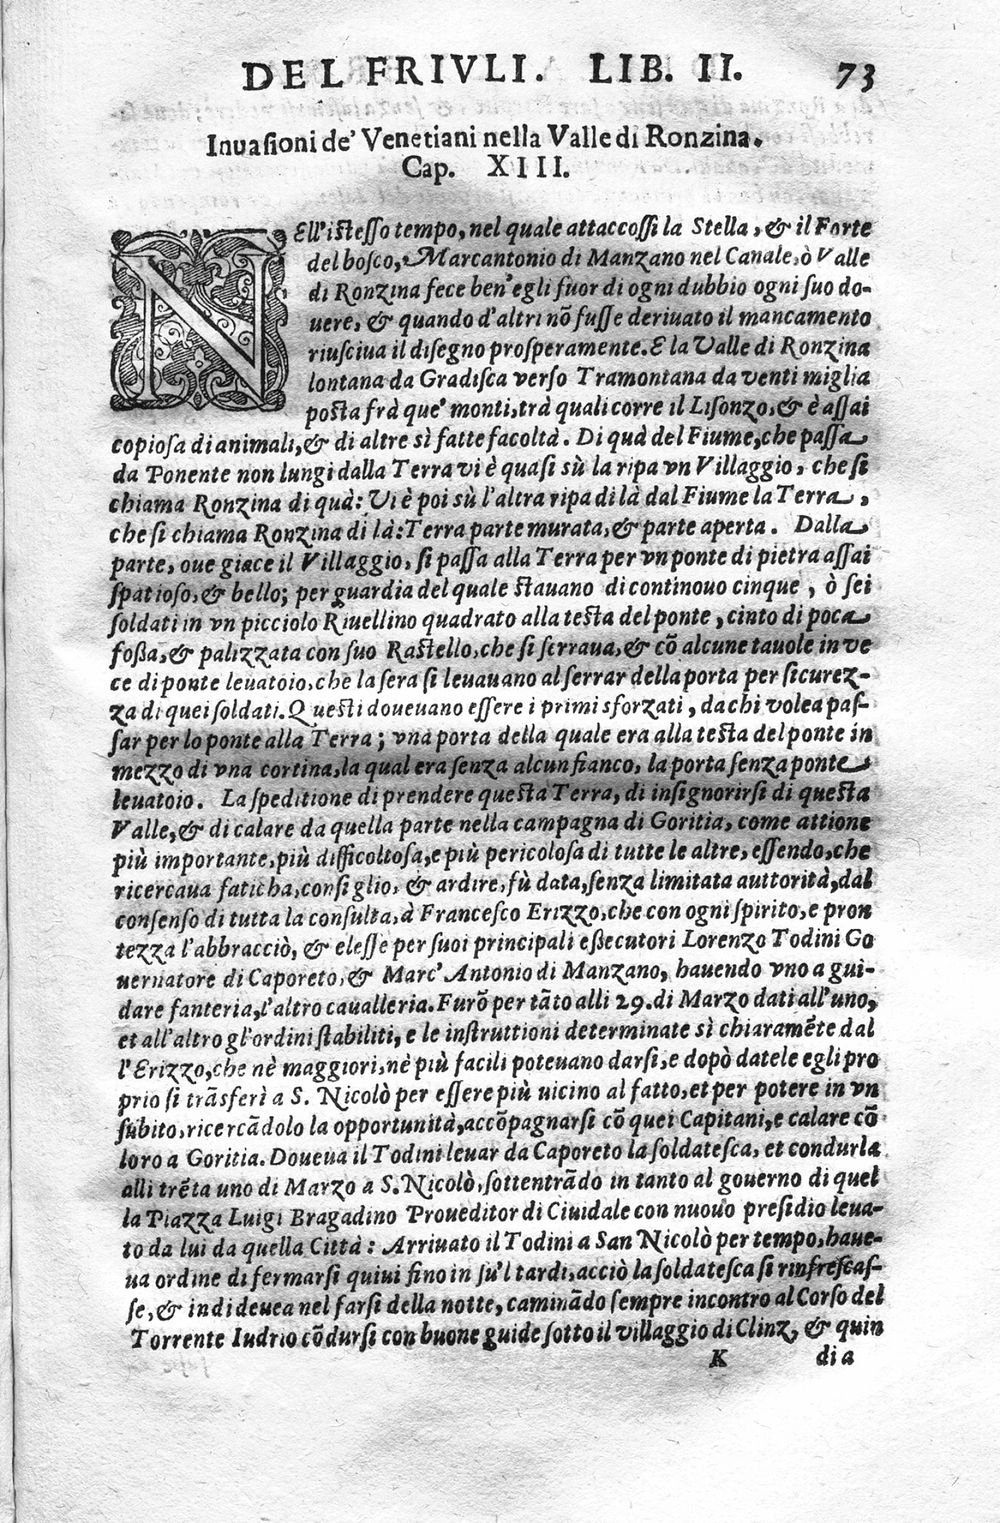 DEL FRIVLI. LIB. II. 73
Inuaſioni de' Venetiani nella Valle di Ronzina.
Cap. XIII.
NEll'iſteſſo tempo, nel quale attaccoſſi la Stella, & il Forte
del boſco, Marcantonio di Manzano nel Canale, ò Valle
di Ronzina fece ben' egli fuor di ogni dubbio ogni ſuo do-
uere, & quando d'altri nō fuſſe deriuato il mancamento
riuſciua il diſegno proſperamente. E la Valle di Ronzina
lontana da Gradiſca verſo Tramontana da venti miglia
poſta frà que' monti, trà quali corre il Liſonzo, & è aſſai
copioſa di animali, & di altre sì fatte facoltà. Di quà del Fiume, che paſſa
da Ponente non lungi dalla Terra vi è quaſi sù la ripa vn Villaggio, che ſi
chiama Ronzina di quà: Vi è poi sù l'altra ripa di là dal Fiume la Terra,
che ſi chiama Ronzina di là: Terra parte murata, & parte aperta. Dalla
parte, oue giace il Villaggio, ſi paſſa alla Terra per vn ponte di pietra aſſai
ſpatioſo, & bello; per guardia del quale ſtauano di continouo cinque, ò ſei
ſoldati in vn picciolo Riuellino quadrato alla teſta del ponte, cinto di poca
foßa, & palizzata con ſuo Raſtello, che ſi ſerraua, & cō alcune tauole in ve
ce di ponte leuatoio, che la ſera ſi leuauano al ſerrar della porta per ſicurez-
za di quei ſoldati. Queſti doueuano eſſere i primi sforzati, da chi volea paſ-
ſar per lo ponte alla Terra; vna porta della quale era alla teſta del ponte in
mezzo di vna cortina, la qual era ſenza alcun fianco, la porta ſenza ponte
leuatoio. La ſpeditione di prendere queſta Terra, di inſignorirſi di queſta
Valle, & di calare da quella parte nella campagna di Goritia, come attione
più importante, più difficoltoſa, e più pericoloſa di tutte le altre, eſſendo, che
ricercaua faticha, conſiglio, & ardire, fù data, ſenza limitata auttorità, dal
conſenſo di tutta la conſulta, à Franceſco Erizzo, che con ogni ſpirito, e pron
tezza l'abbracciò, & eleſſe per ſuoi principali eßecutori Lorenzo Todini Go
uernatore di Caporeto, & Marc' Antonio di Manzano, hauendo vno a gui-
dare fanteria, l'altro caualleria. Furō per tāto alli 29. di Marzo dati all'uno,
et all'altro gl'ordini ſtabiliti, e le inſtruttioni determinate sì chiaramēte dal
l'Erizzo, che nè maggiori, nè più facili poteuano darſi, e dopò datele egli pro
prio ſi trāsferì a S. Nicolò per eſſere più uicino al fatto, et per potere in vn
ſubito, ricercādolo la opportunità, accōpagnarſi cō quei Capitani, e calare cō
loro a Goritia. Doueua il Todini leuar da Caporeto la ſoldateſca, et condurla
alli trēta uno di Marzo a S. Nicolò, ſottentrādo in tanto al gouerno di quel
la Piazza Luigi Bragadino Proueditor di Ciuidale con nuouo preſidio leua-
to da lui da quella Città: Arriuato il Todini a San Nicolò per tempo, haue-
ua ordine di fermarſi quiui fino in ſu'l tardi, acciò la ſoldateſca ſi rinfreſcaſ-
ſe, & indi deuea nel farſi della notte, caminādo ſempre incontro al Corſo del
Torrente Iudrio cōdurſi con buone guide ſotto il villaggio di Clinz, & quin
K di a